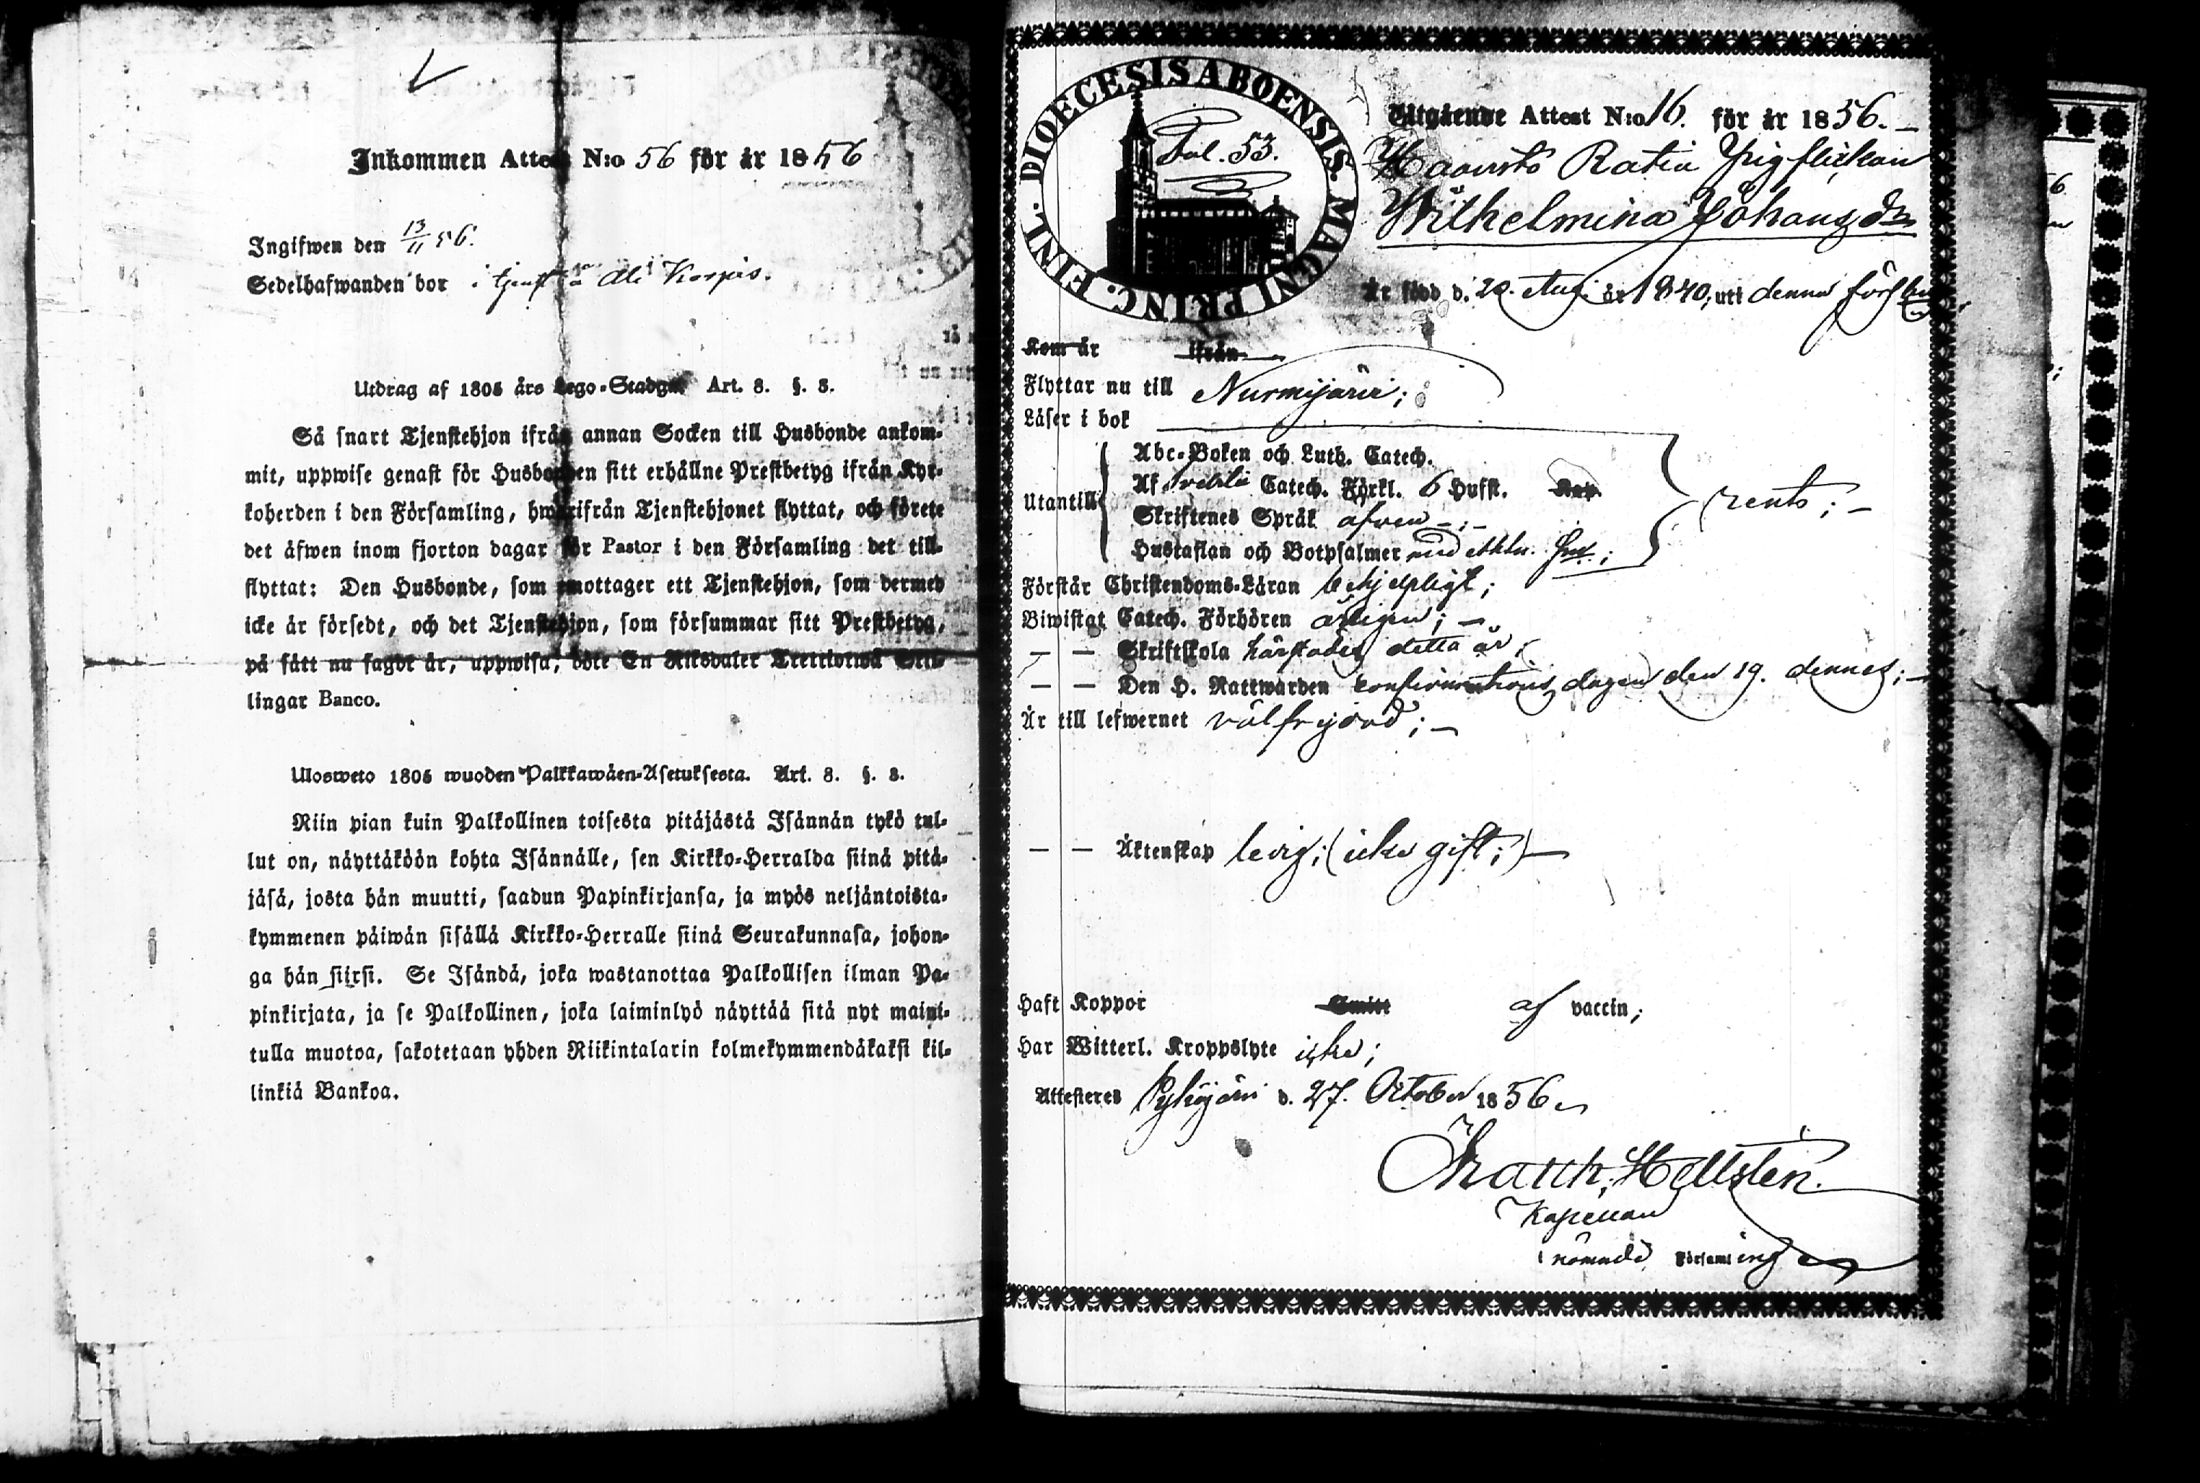 Inkommen Attest N:o 56 för år 1856
Ingifwen den 13/11 56.
Sedelhafwanden bor i tjenst å Ali Korpis.
Utdrag af 1805 års Lego-Stadga. Art. 8. §. 8.
Så snart Tjenstehjon ifrån annan Socken till Husbonde ankom-
mit, uppwise genast för Husbonden sitt erhållne Prestbetyg ifrån Kyr-
koherden i den Församling, hwarifrån Tjenstehjonet flyttat, och förete
det äfwen inom fjorton dagar för Pastor i den Församling det till-
flyttat: Den Husbonde, som emottager ett Tjenstehjon, som dermed
icke är försedt, och det Tjenstehjon, som försummar sitt Prestbetyg,
på sätt nu sagdt är, uppwisa, böte En Riksdaler Trettiotwå Skil-
lingar Banco.
Ulosweto 1805 wuoden Palkkawäen-Asetuksesta. Art. 8. §. 8.
Niin pian kuin Palkollinen toisesta pitäjästä Isännän tykö tul-
lut on, näyttäköön kohta Isännälle, sen Kirkko-Herralda siinä pitä-
jäsä, josta hän muutti, saadun Papinkirjansa, ja myös neljäntoista-
kymmenen päiwän sisällä Kirkko-Herralle siinä Seurakunnasa, johon-
ga hän siirsi. Se Isändä, joka wastanottaa Palkollisen ilman Pa-
pinkirjata, ja se Palkollinen, joka laiminlyö näyttää sitä nyt maini-
tulla muotoa, sakotetaan yhden Riikintalarin kolmekymmendäkaksi kil-
linkiä Bankoa.
DIOECESIS ABOENSIS. MAGNI PRINC. FINL.
Fol. 53.
Utgående Attest N:o 16. för år 1856.
Haavisto Ratia flickan
Wilhelmina Johansdr
Är född d. 20. Aug. år 1840, uti denna förs
Kom år ifrån
Flyttar nu till Nurmijärvi;
Läser i bok
Abc-Boken och Luth. Catech.
Utantill Af Catech. Förkl. 6 Hufst.
Skriftenes Språk äfven
Hustaflan och Botpsalmer
rents;
Förstår Christendoms-Läran behjelpligt;
Biwistat Catech. Förhören årligen;
— — Skriftskola härstädes detta år;
— — Den H. Nattwarden confirmations dagen den 19. dennes;
Är till lefwernet välfrejdad;
— — Äktenskap ledig; (icke gift;)
Haft Koppor Smitt af vaccin;
Har Witterl. Kroppslyte icke;
Attesteres Pyhäjärvi d. 27. October 1856
Hellstén.
Kapellan
i nämnde Församling